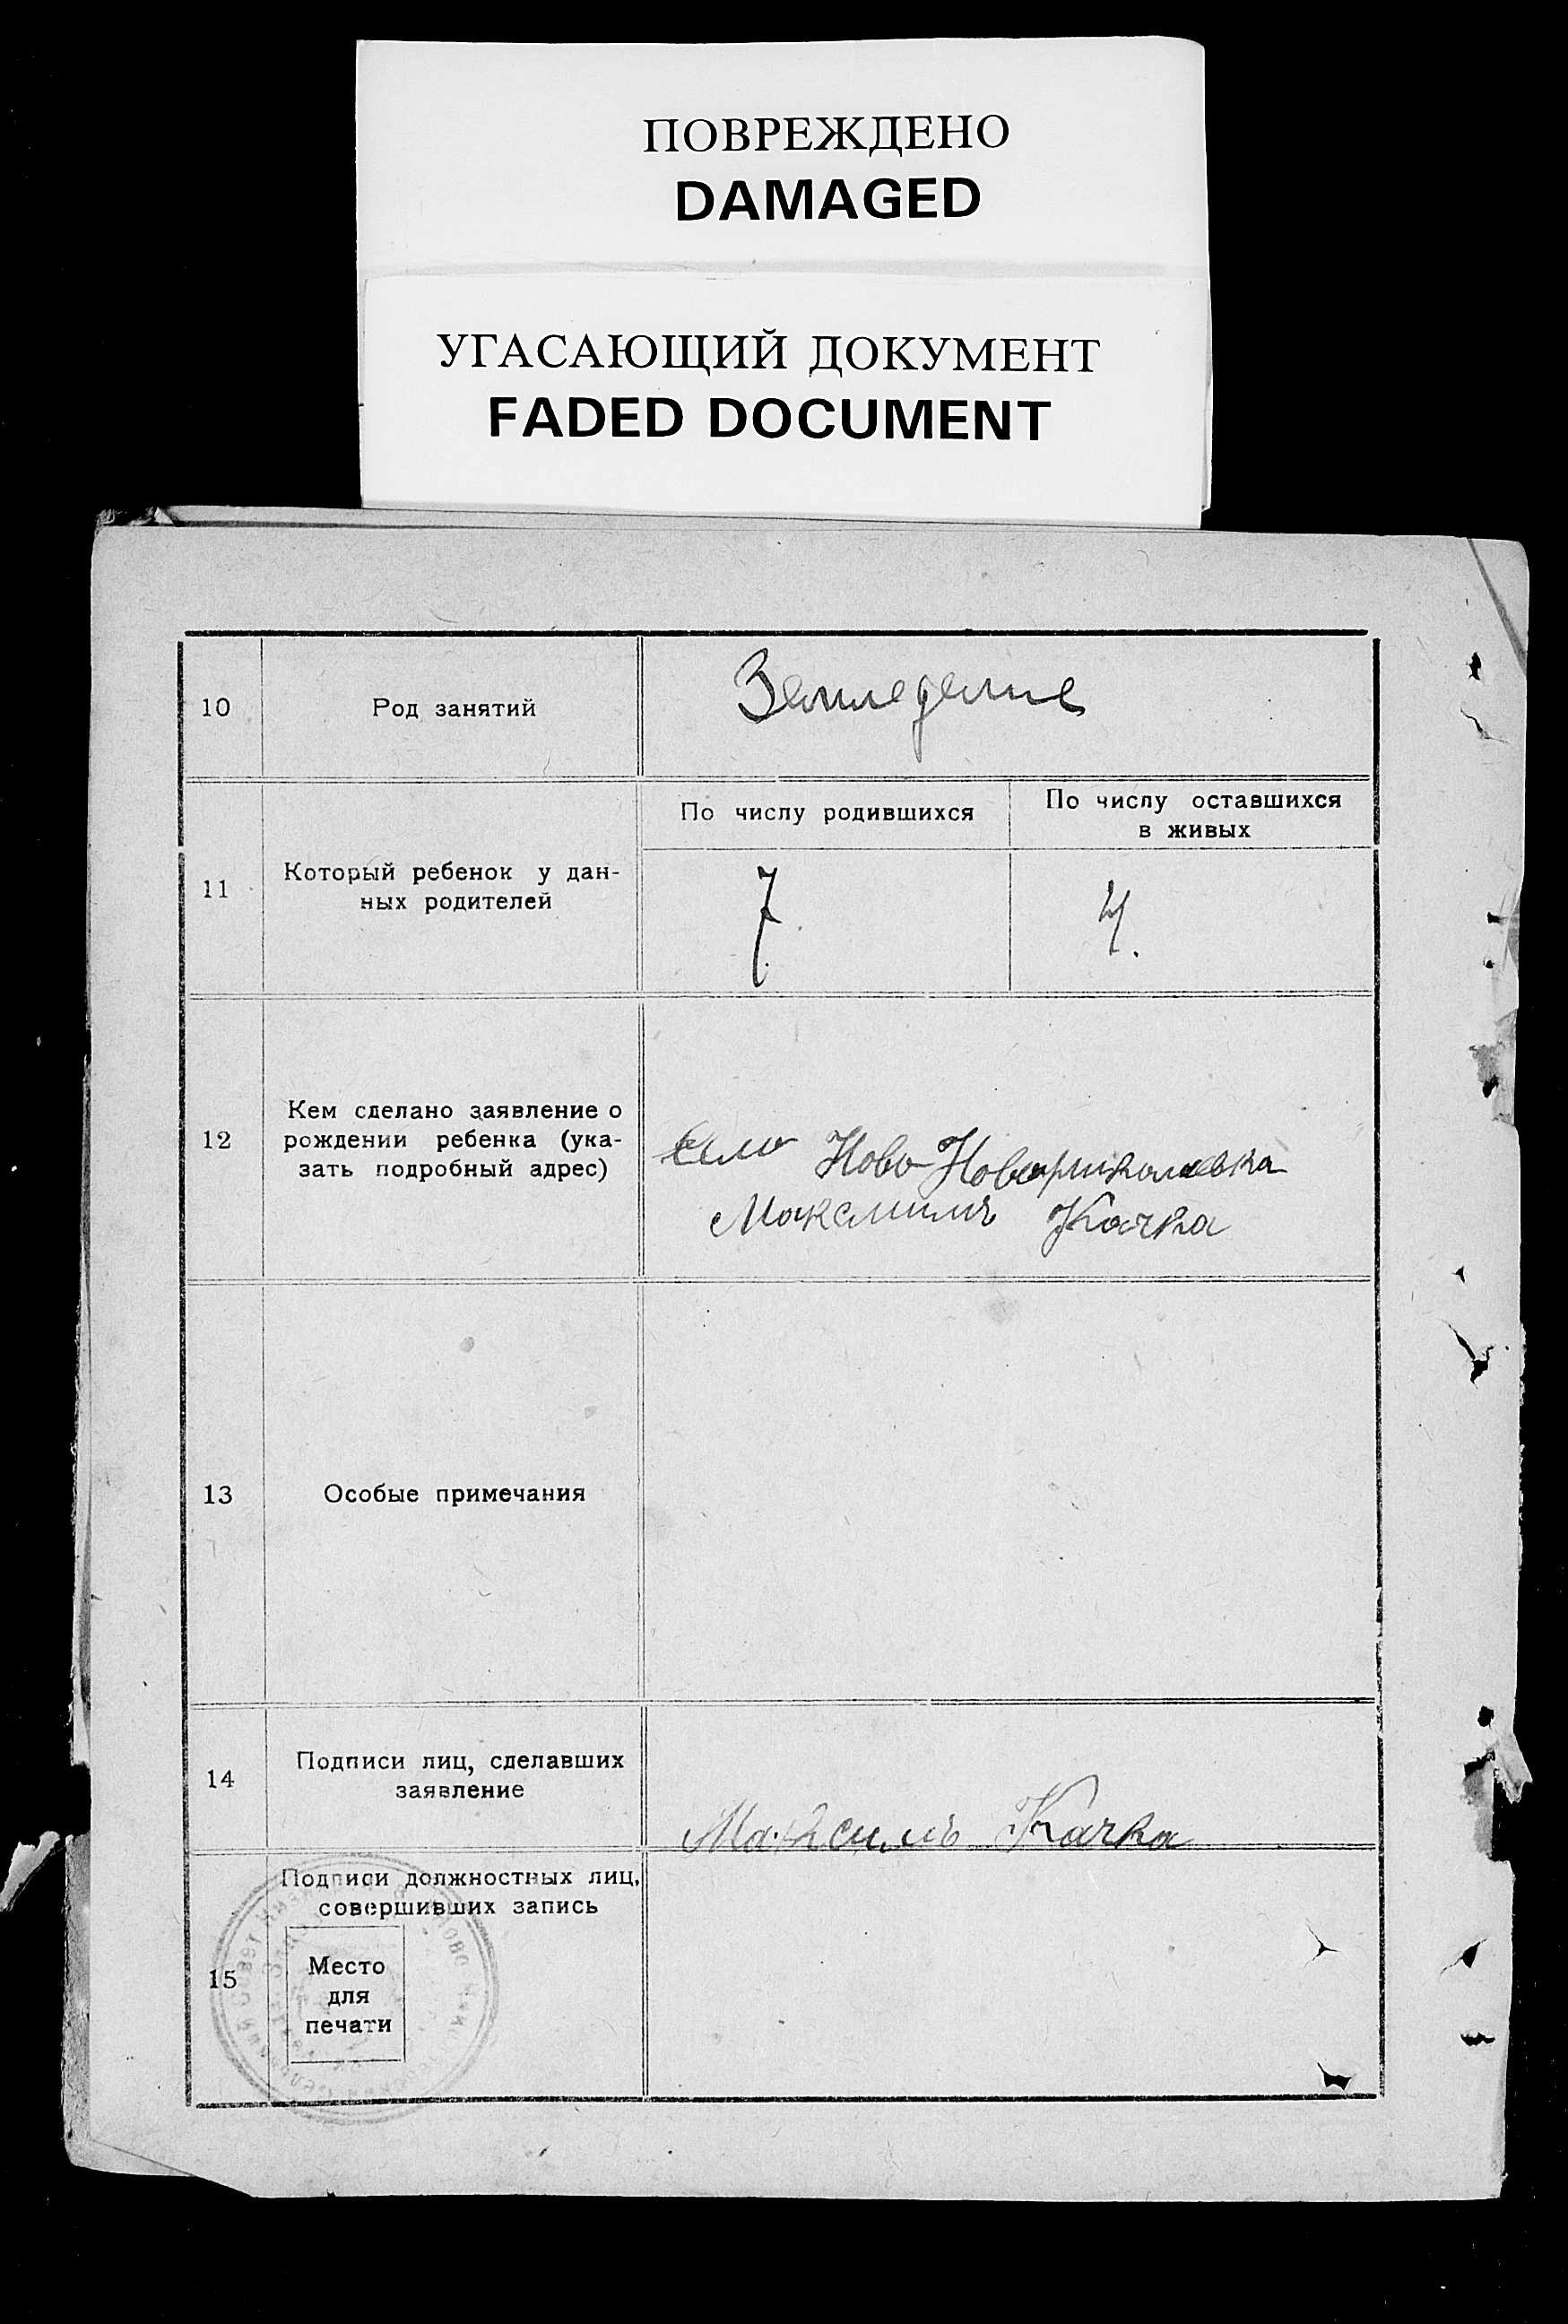 ПОВРЕЖДЕНО
DAMAGED
УГАСАЮЩИЙ ДОКУМЕНТ
FADED DOCUMENT
10 Род занятий Земледелие
11 Который ребенок у дан-
ных родителей
По числу родившихся
По числу оставшихся
в живых
7
4.
12 Кем сделано заявление о
рождении ребенка (ука-
зать подробный адрес)
Село Ново
Качка
13 Особые примечания
14 Подписи лиц, сделавших
заявление
Качка
15 Подписи должностных лиц,
совершивших запись
Место
для
печати